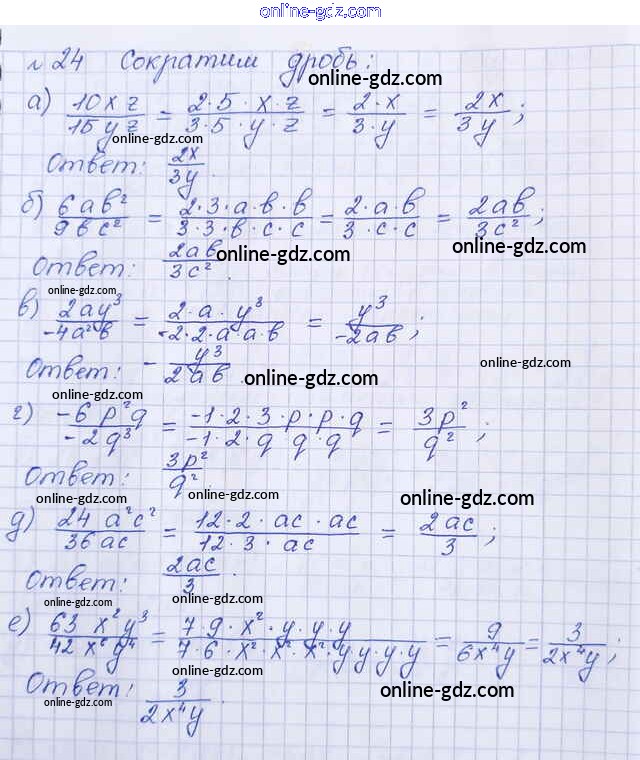 online-gdz.com
№24 Сократим дробь:
online-gdz.com
а) 10xz/15yz = 2·5·x·z/3·5·y·z = 2·x/3·y = 2x/3y;
online-gdz.com online-gdz.com
Ответ: 2x/3y.
online-gdz.com
б) 6ab²/9bc² = 2·3·a·b·b/3·3·b·c·c = 2·a·b/3·c·c = 2ab/3c²;
online-gdz.com
Ответ: 2ab/3c².
online-gdz.com
online-gdz.com
в) 2ay³/-4a²b = 2·a·y³/-2·2·a·a·b = y³/-2ab;
Ответ: - y³/2ab.
online-gdz.com online-gdz.com
online-gdz.com
г) -6p²q/-2q³ = -1·2·3·p·p·q/-1·2·q q·q = 3p²/q²;
Ответ: 3p²/q².
online-gdz.com online-gdz.com online-gdz.com
д) 24a²c²/36ac = 12·2·ac·ac/12·3·ac = 2ac/3;
Ответ: 2ac/3.
online-gdz.com
online-gdz.com
е) 63x²y³/42x⁶y⁴ = 7·9·x²·y·y·y/7·6·x²·x²·x²·y·y·y·y = 9/6x⁴y = 3/2x⁴y;
online-gdz.com
Ответ: 3/2x⁴y.
online-gdz.com online-gdz.com
online-gdz.com